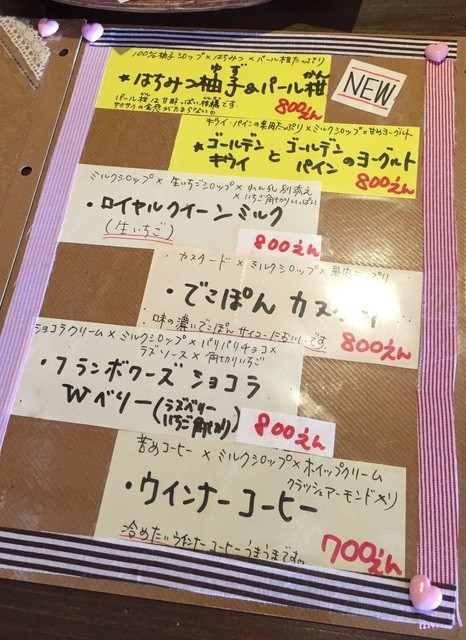 100%柚子シロップ×はちみつ×パール柑たっぷり
★はちみつ柚子&パール柑
ゆず
かん
パール柑は甘酸っぱい柑橘です。
サクサクの食感がたまらない♡
800えん
NEW
キウイ・パインの果肉たっぷり×ミルクシロップ×甘めヨーグルト
★ゴールデンキウイとゴールデンパインのヨーグルト
800えん
ミルクシロップ×生いちごシロップ×れん乳別添え
×いちご角切りいっぱい
・ロイヤルクイーンミルク
(生いちご)
800えん
カスタード×ミルクシロップ×果肉たっぷり
・でこぽん カスタード
味の濃いでこぽんサイコーにおいしいです
800えん
ショコラクリーム×ミルクシロップ×パリパリチョコ×
ラズソース×角切りいちご
・フランボワーズ ショコラ
Wベリー(ラズベリーいちご角切り)
800えん
苦めコーヒー×ミルクシロップ×ホイップクリーム
クラッシュアーモンド入り
・ウインナーコーヒー
冷めたいウインナーコーヒーうまうまです。
700えん